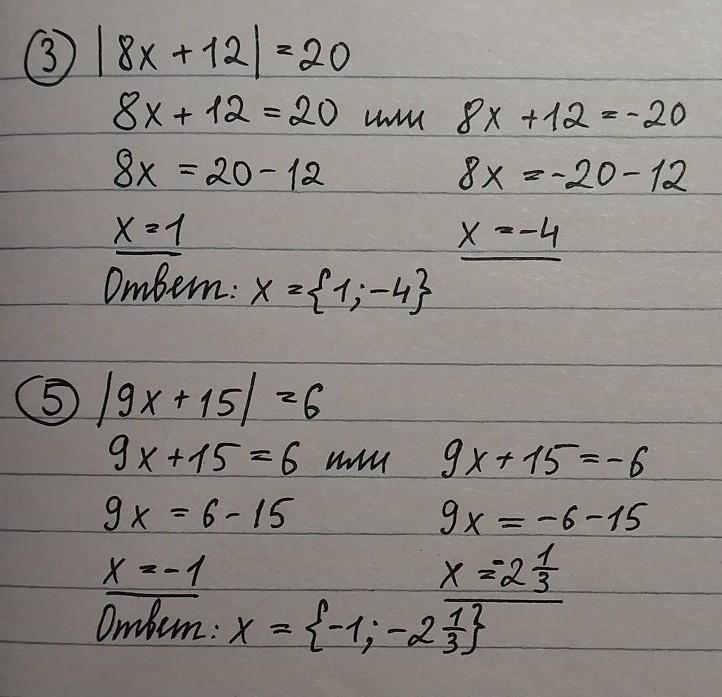 ③ |8x + 12| = 20
8x + 12 = 20 или 8x + 12 = -20
8x = 20 - 12 8x = -20 - 12
x = 1 x = -4
Ответ: x = {1; -4}
⑤ |9x + 15| = 6
9x + 15 = 6 или 9x + 15 = -6
9x = 6 - 15 9x = -6 - 15
x = -1 x = -2 1/3
Ответ: x = {-1; -2 1/3}